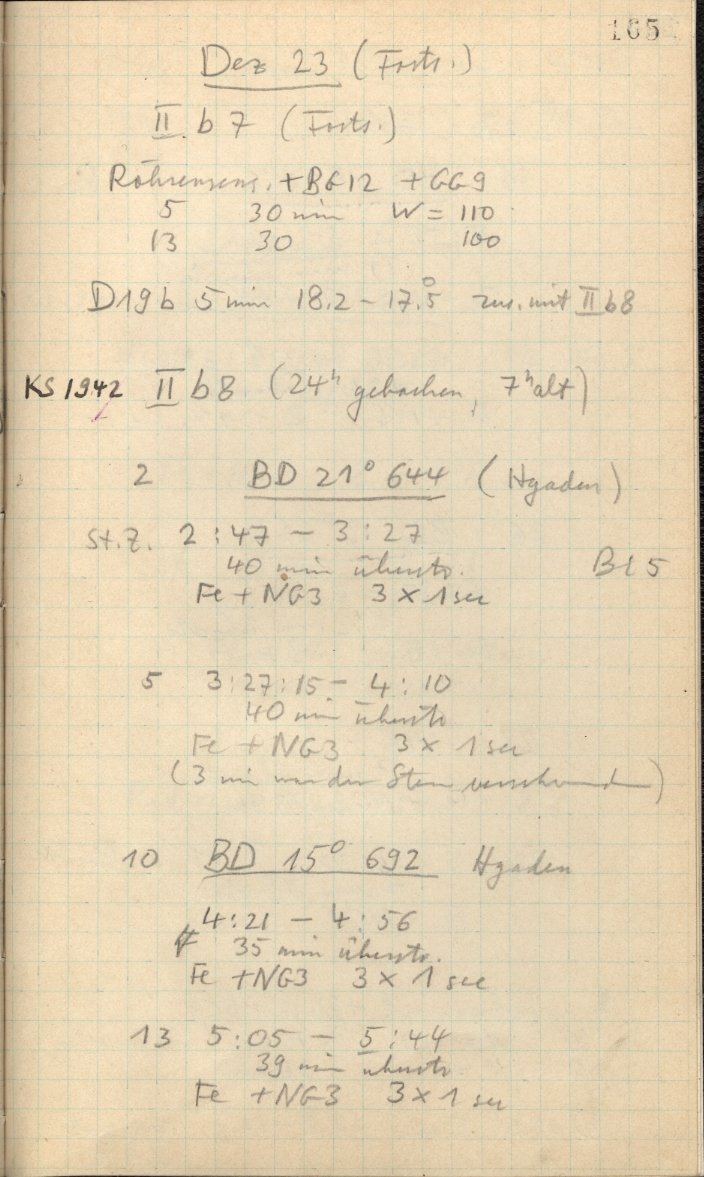 165
Dez 23 (Forts.)
II b 7 (Forts.)
Röhrensens. + BG12 + GG9
5 30 min W = 110
13 30 100
D19b 5 min 18.2 - 17.5° zus. mit II b8
KS 1942 II b8 (24ʰ gebacken, 7ʰ alt)
2 BD 21° 644 (Hyaden)
St.Z. 2:47 - 3:27
40 min überstr. Bl 5
Fe + NG3 3 x 1 sec
5 3:27:15 - 4:10
40 min überstr
Fe + NG3 3 x 1 sec
(3 min war der Stern verschwunden)
10 BD 15° 692 Hyaden
4:21 - 4:56
35 min überstr.
Fe + NG3 3 x 1 sec
13 5:05 - 5:44
39 min überstr
Fe + NG3 3 x 1 sec